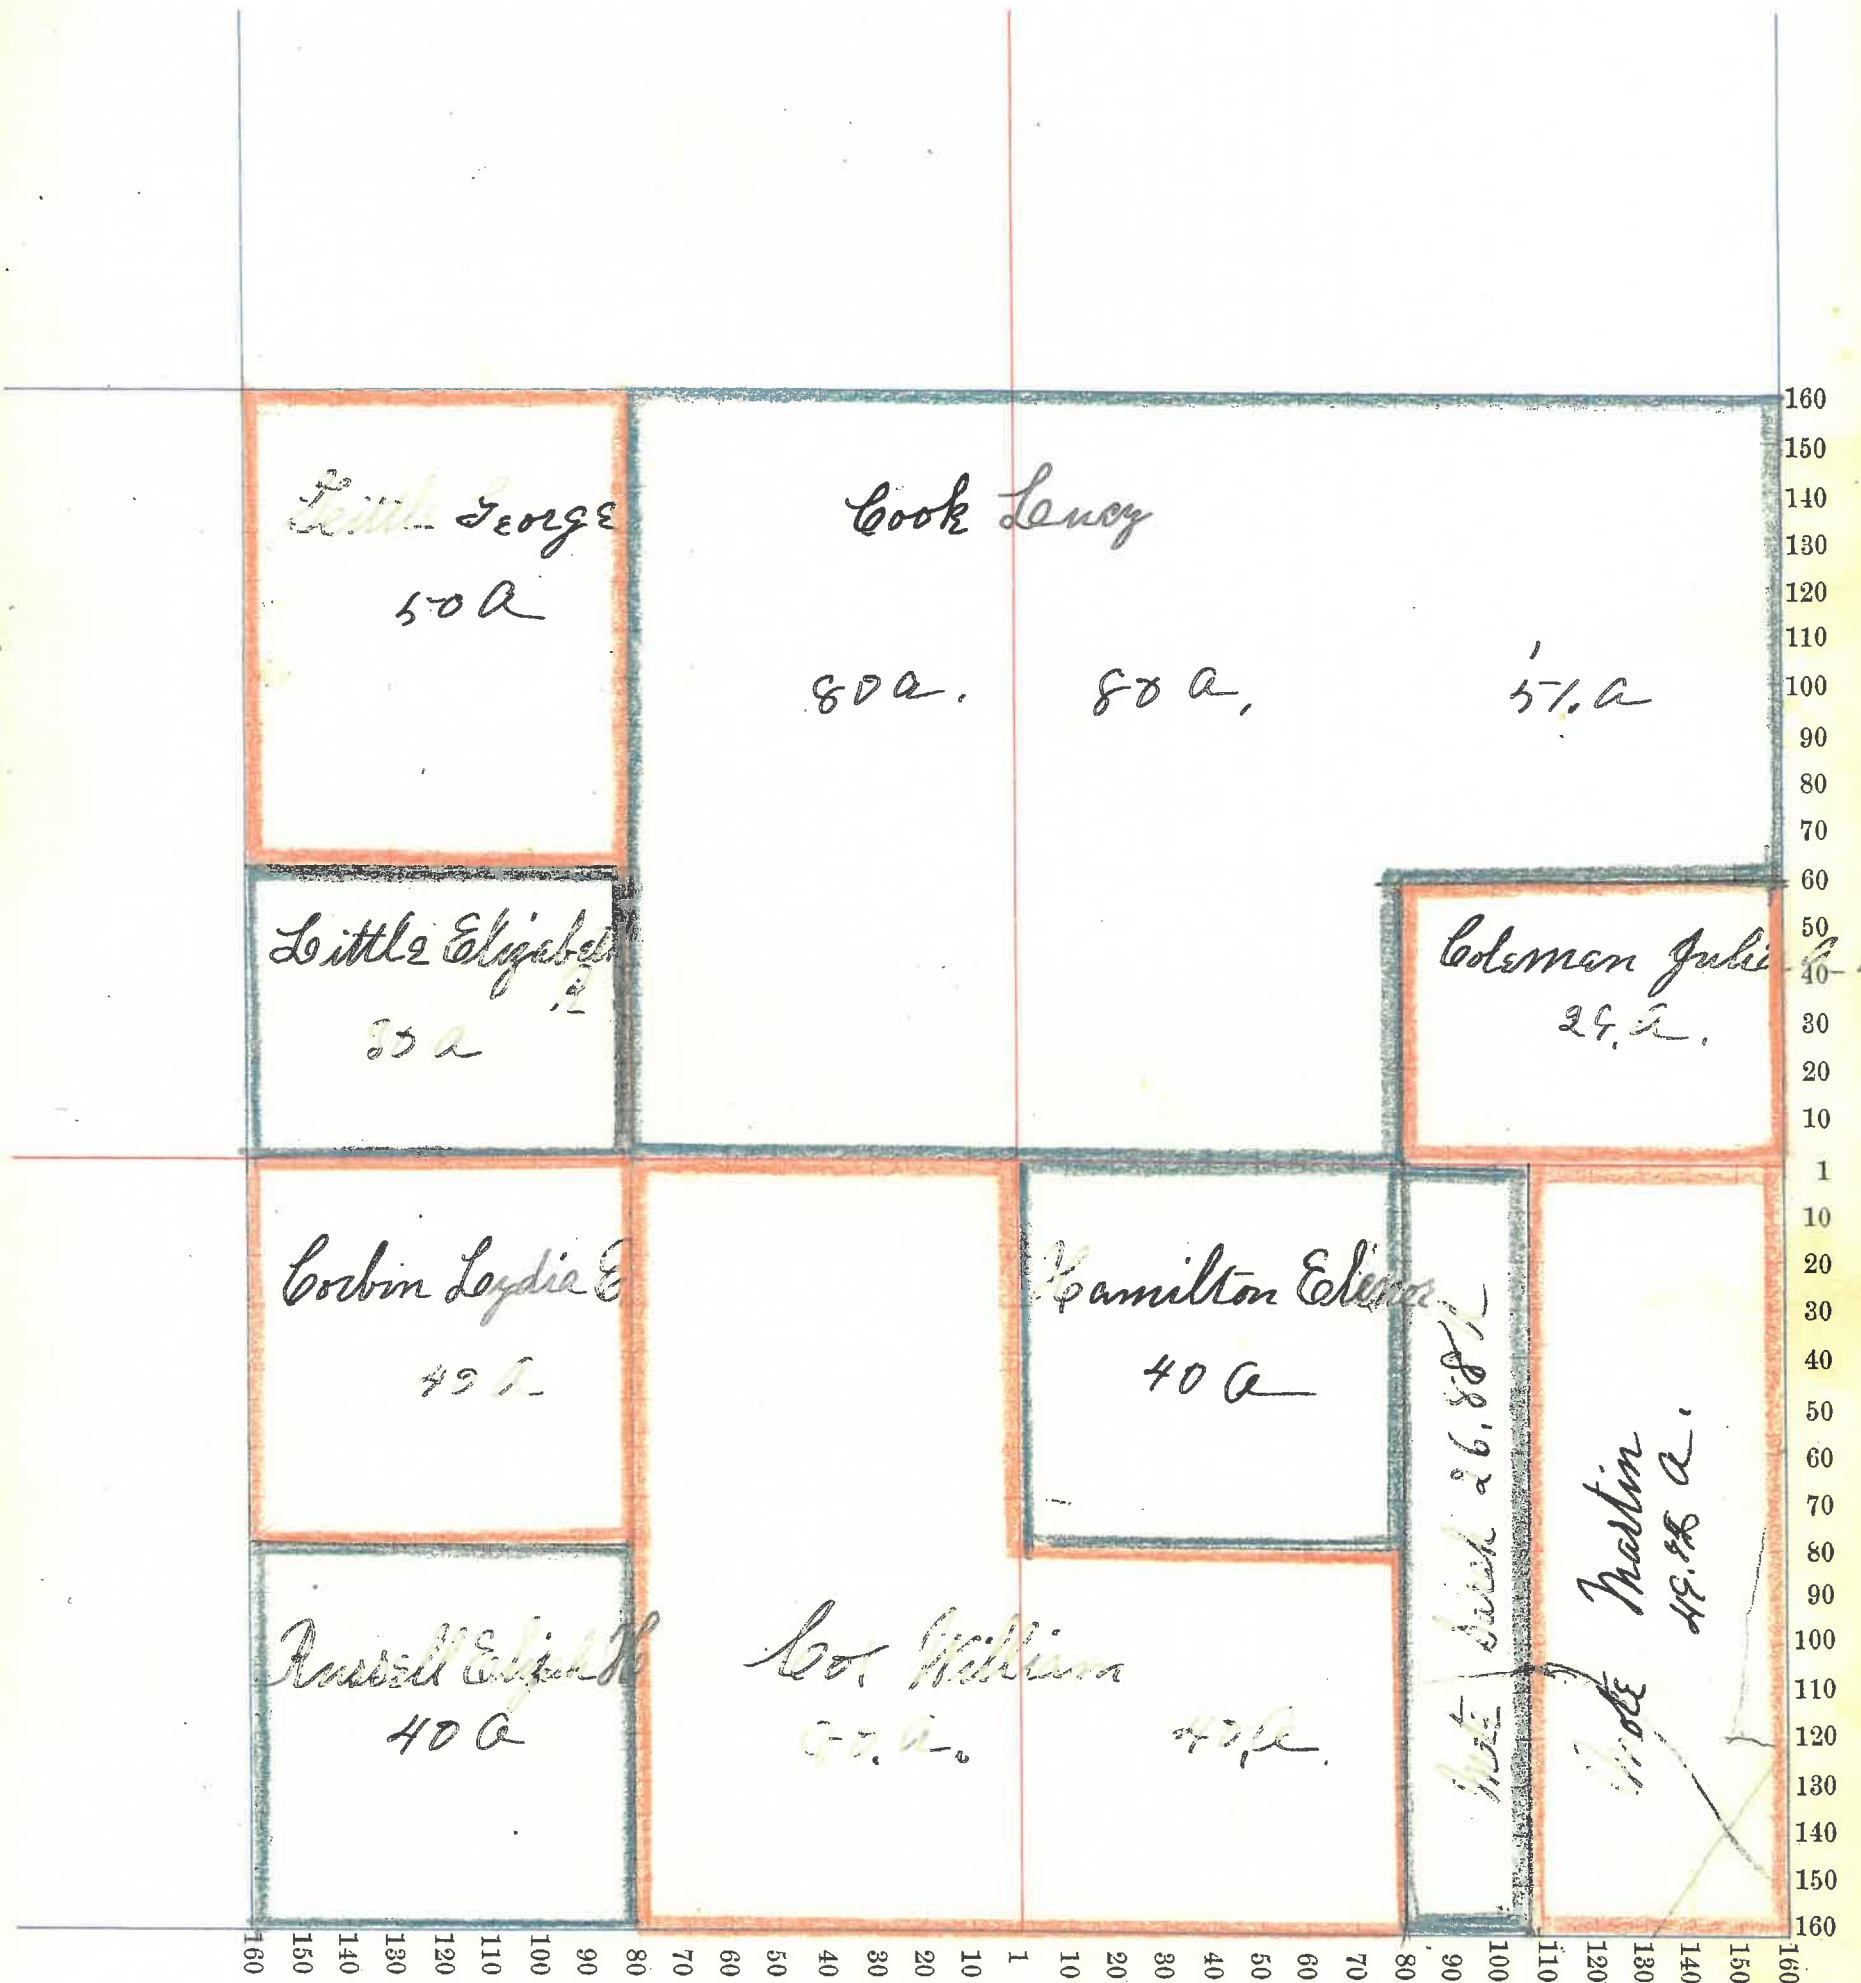 Little George
50 a
Cook Lucy
80 a.
80 a,
51. a
Little Elizabeth
R
30 a
Coleman Julia A
29. a.
Corbin Lydia E
40 A
Hamilton Elenor
40 a
Russell Elijah H
40 a
Cox William
80. a.
40. a.
Mote Sarah 26.88 A
Mote Martin
a.
160
150
140
130
120
110
100
90
80
70
60
50
40
30
20
10
1
10
20
30
40
50
60
70
80
90
100
110
120
130
140
150
160
160 150 140 130 120 110 100 90 80 70 60 50 40 30 20 10 1 10 20 30 40 50 60 70 80 90 100 110 120 130 140 150 160